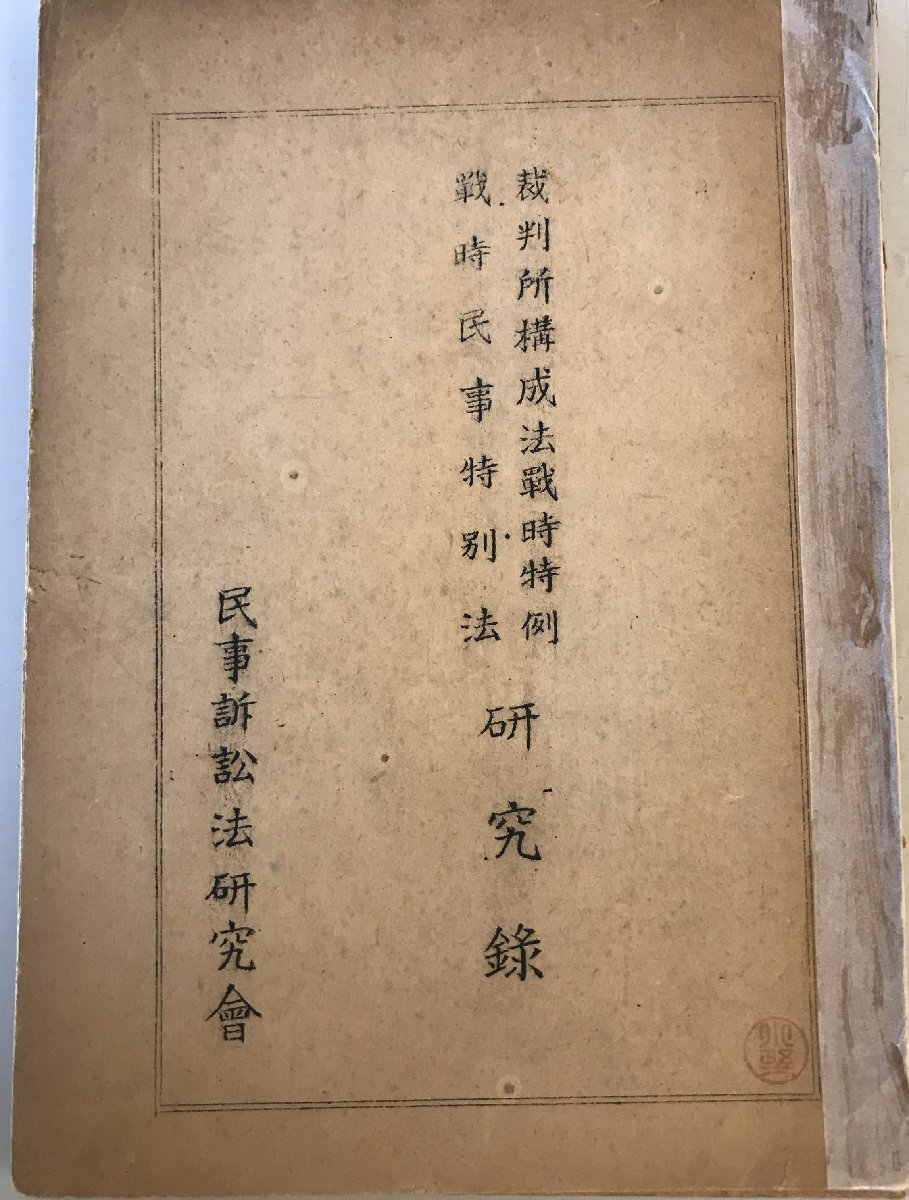 裁判所構成法戰時特例
戰時民事特別法
研究錄
民事訴訟法研究會